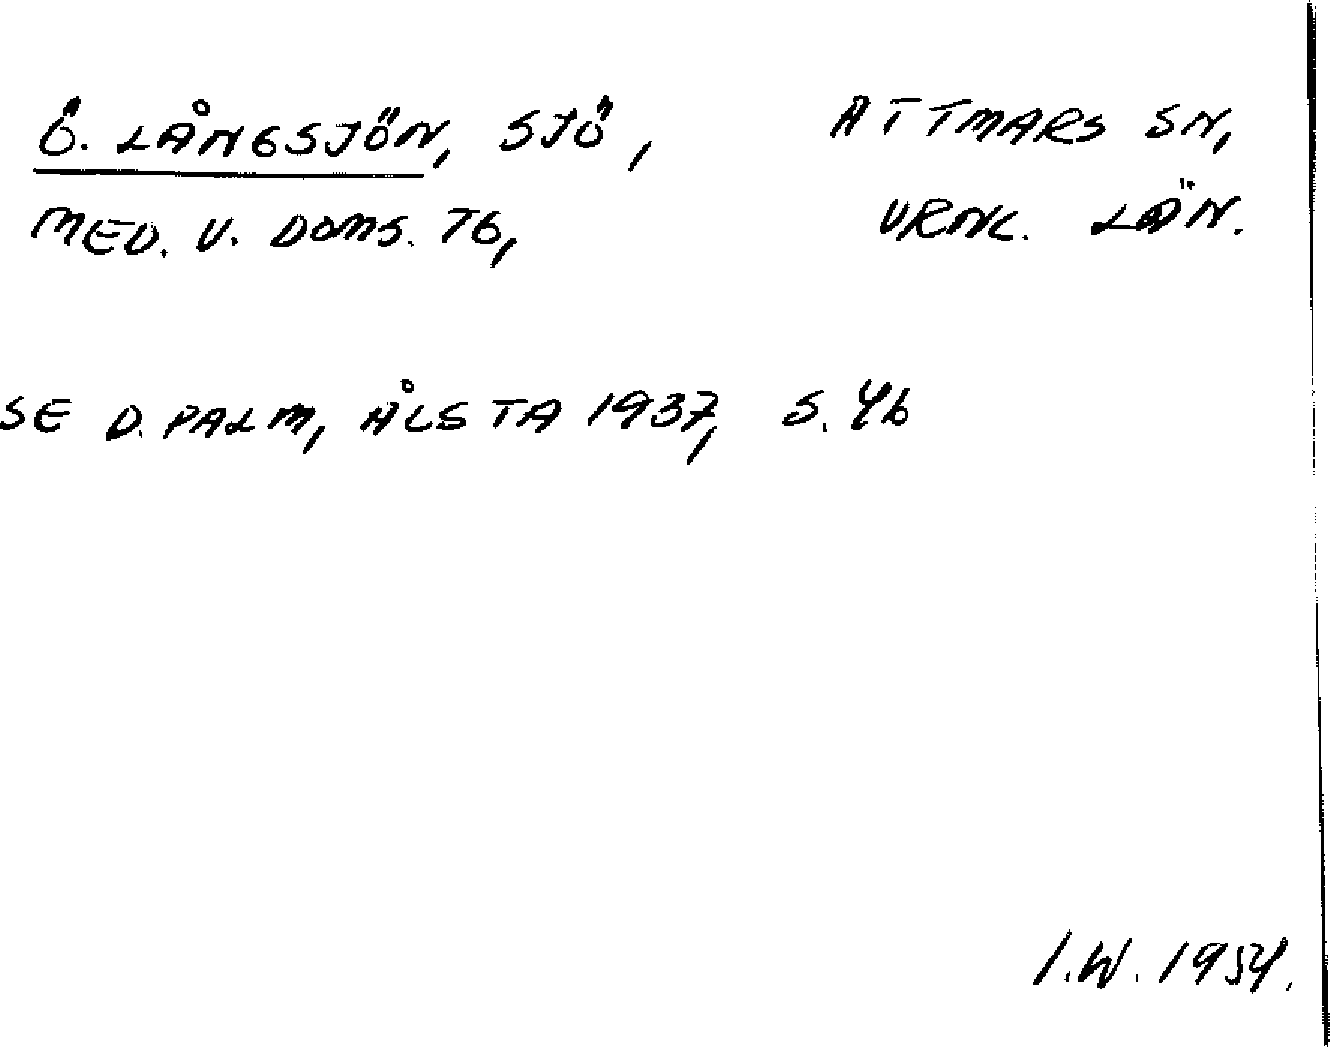 Ö. LÅNGSJÖN, SJÖ, ATTMARS SN,
MED. V. DOMS. 76, VRNL. LÄN.
SE D. PALM, ÅLSTA 1937, S. 46
I.W. 1954.